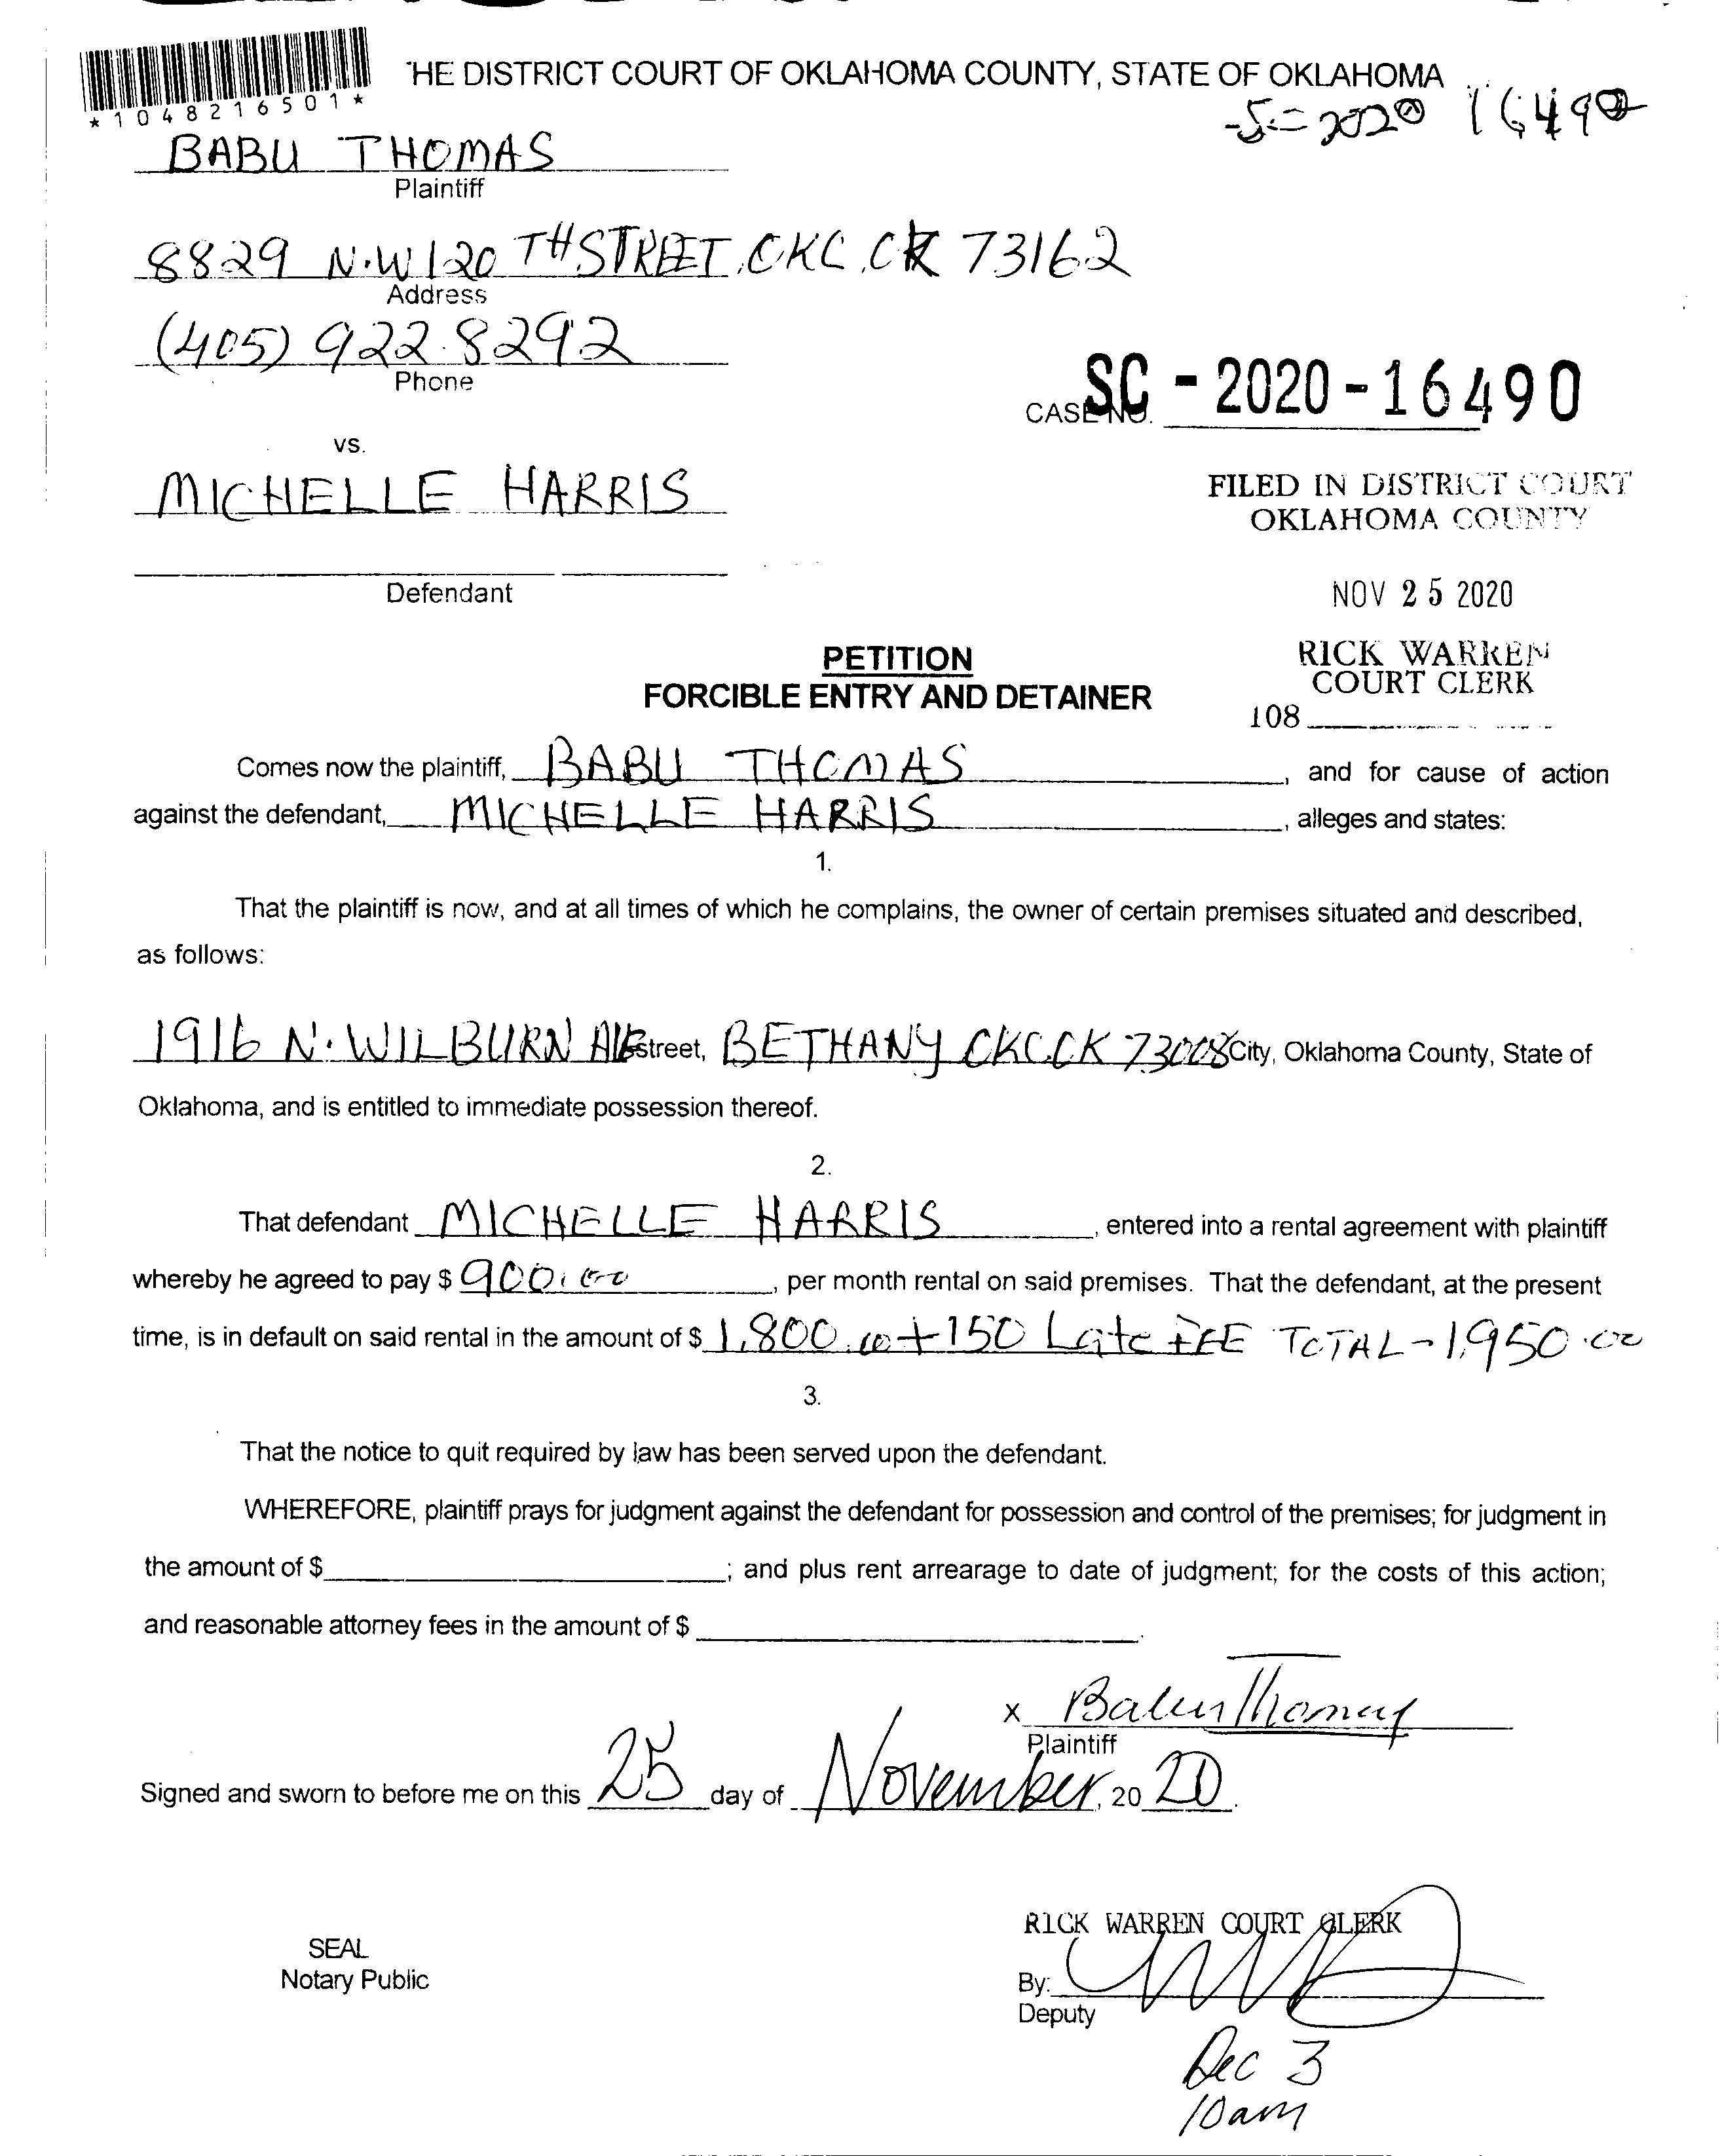 *1048216501*
HE DISTRICT COURT OF OKLAHOMA COUNTY, STATE OF OKLAHOMA
2020 16490
BABU THOMAS
Plaintiff
8829 N.W 120 TH STREET, OKC, OK 73162
Address
(405) 922.8292
Phone
CASE NO. SC - 2020 - 16490
vs.
MICHELLE HARRIS
FILED IN DISTRICT COURT
OKLAHOMA COUNTY
Defendant
NOV 25 2020
PETITION
FORCIBLE ENTRY AND DETAINER
RICK WARREN
COURT CLERK
108
Comes now the plaintiff, BABU THOMAS, and for cause of action
against the defendant, MICHELLE HARRIS, alleges and states:
1.
That the plaintiff is now, and at all times of which he complains, the owner of certain premises situated and described,
as follows:
1916 N. WILBURN AVE Street, BETHANY OKC.OK 73008 City, Oklahoma County, State of
Oklahoma, and is entitled to immediate possession thereof.
2.
That defendant MICHELLE HARRIS, entered into a rental agreement with plaintiff
whereby he agreed to pay $ 900.00, per month rental on said premises. That the defendant, at the present
time, is in default on said rental in the amount of $ 1,800.00 + 150 Late FEE TOTAL - 1,950.00
3.
That the notice to quit required by law has been served upon the defendant.
WHEREFORE, plaintiff prays for judgment against the defendant for possession and control of the premises; for judgment in
the amount of $ ; and plus rent arrearage to date of judgment; for the costs of this action;
and reasonable attorney fees in the amount of $ .
x Babu Thomas
Plaintiff
Signed and sworn to before me on this 25 day of November, 20 20.
RICK WARREN COURT CLERK
SEAL
Notary Public
By:
Deputy
Dec 3
10am